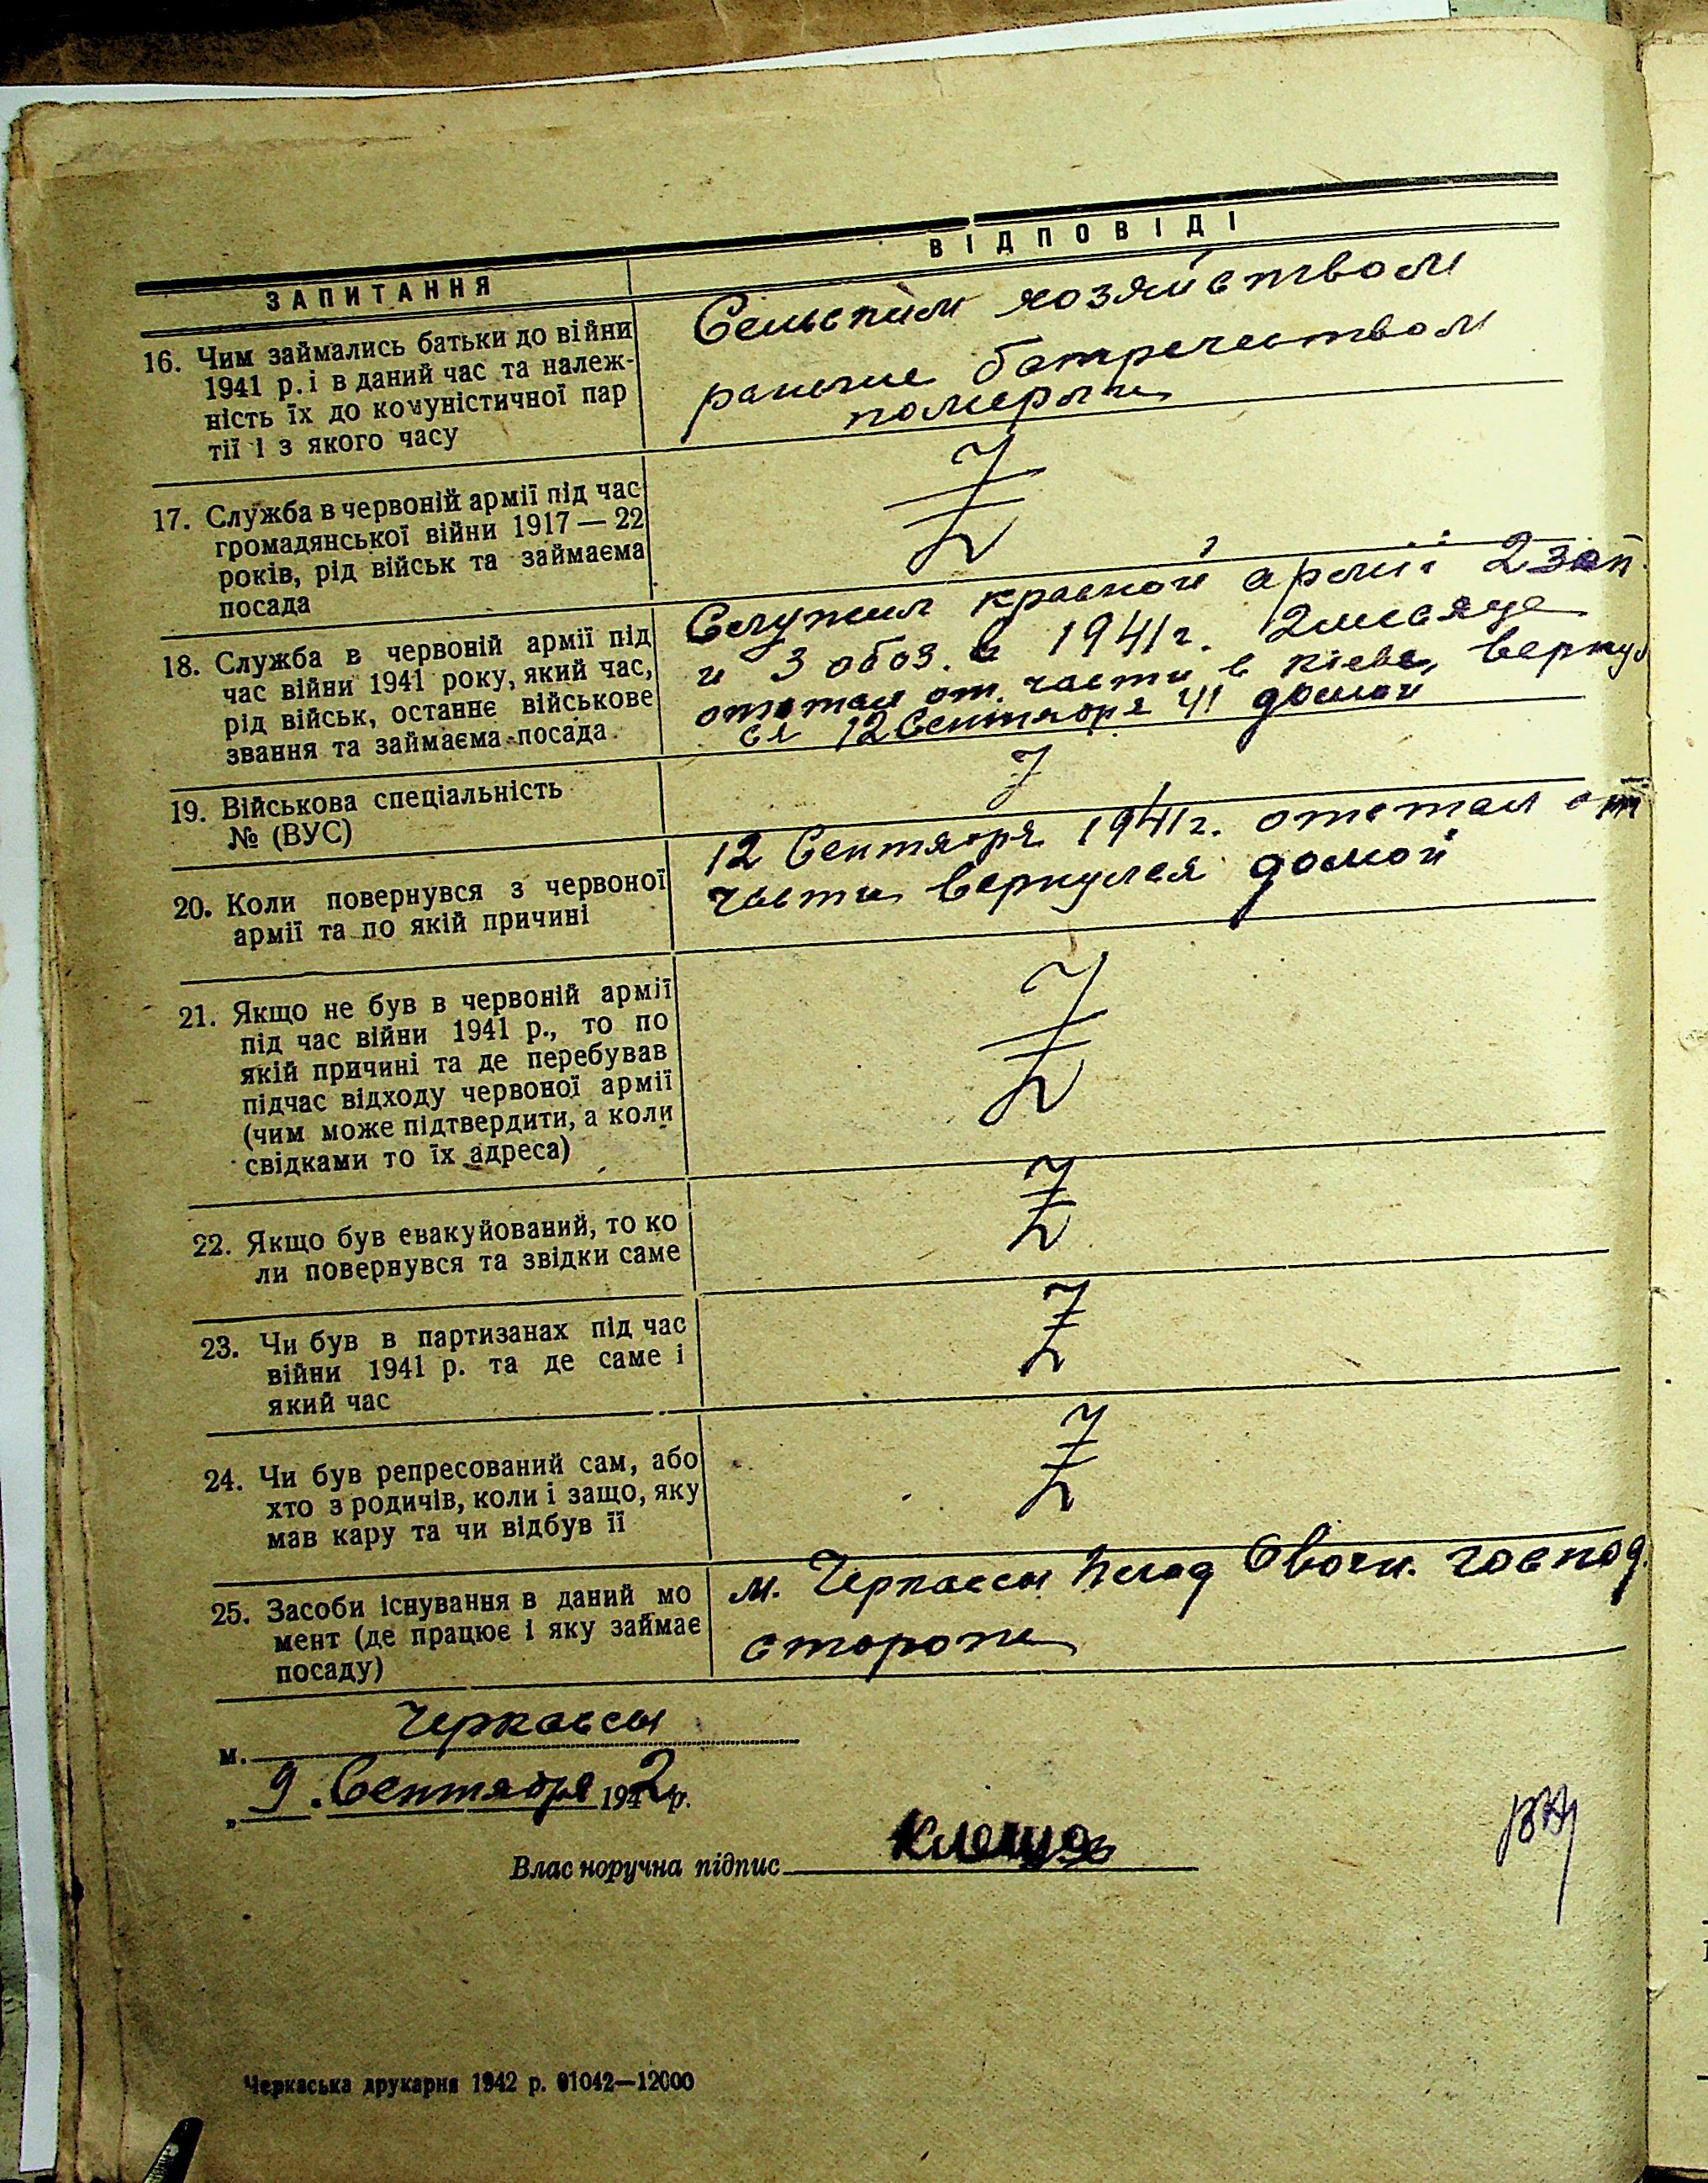 ЗАПИТАННЯ
ВІДПОВІДІ
16. Чим займались батьки до війни
1941 р. і в даний час та належ-
ність їх до комуністичної пар
тії і з якого часу
Сельским хозяйством
раньше батрачеством
померли
17. Служба в червоній армії під час
громадянської війни 1917 — 22
років, рід військ та займаєма
посада
Z
18. Служба в червоній армії під
час війни 1941 року, який час,
рід військ, останнє військове
звання та займаєма посада.
Служил красной армії 2 зап.
и 3 обоз. в 1941 г. 2 месяца
отстал от части в Киеве, вернул
ся 12 Сентября 41 домой
19. Військова спеціальність
№ (ВУС)
Z
20. Коли повернувся з червоної
армії та по якій причині
12 Сентября 1941 г. отстал от
части вернулся домой
21. Якщо не був в червоній армії
під час війни 1941 р., то по
якій причині та де перебував
підчас відходу червоної армії
(чим може підтвердити, а коли
свідками то їх адреса)
Z
22. Якщо був евакуйований, то ко
ли повернувся та звідки саме
Z
23. Чи був в партизанах під час
війни 1941 р. та де саме і
який час
Z
24. Чи був репресований сам, або
хто з родичів, коли і защо, яку
мав кару та чи відбув її
Z
25. Засоби існування в даний мо
мент (де працює і яку займає
посаду)
м. Черкассы Овочн. господ.
сторож
м. Черкассы
„ 9 . Сентября 1942 р.
Власноручна підпис
Черкаська друкарня 1942 р. 01042—12000